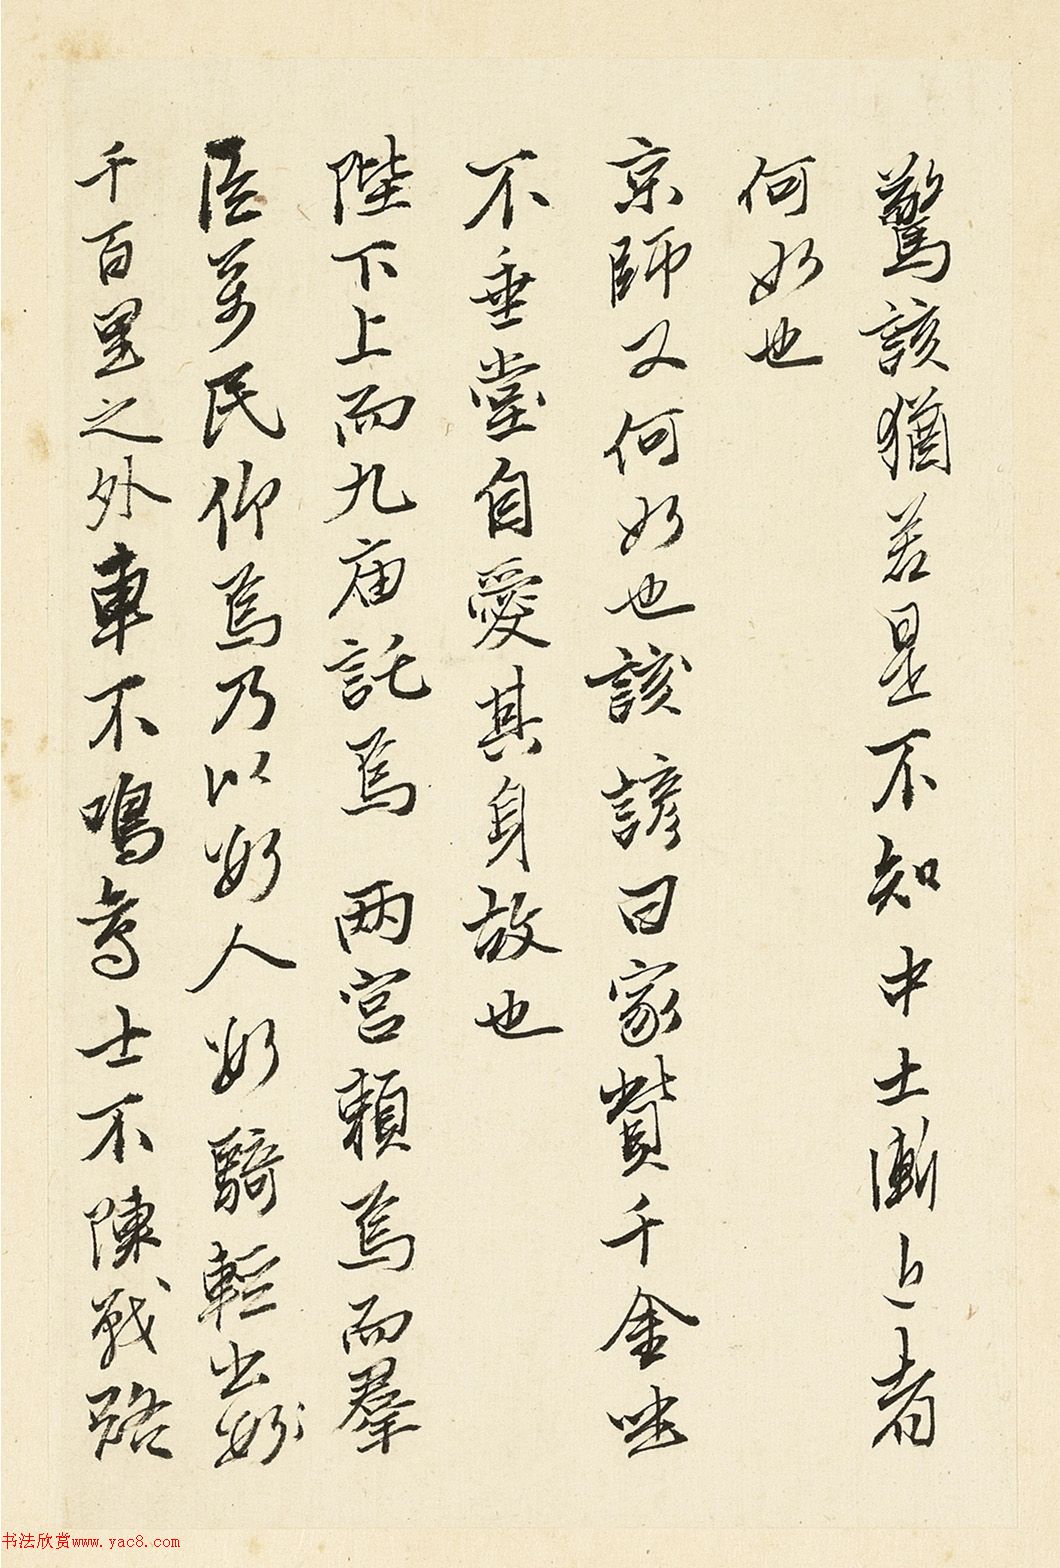 驚該猶若是不知中土漸者
何如也
京師又何如也該諺曰家貲千金坐
不垂堂自愛其身故也
陛下上而九庙託焉两宫賴焉而羣
臣萬民仰焉乃以數人數騎輕出數
千百里之外車不鳴鸾士不陳戰路
书法欣赏www.yac8.com